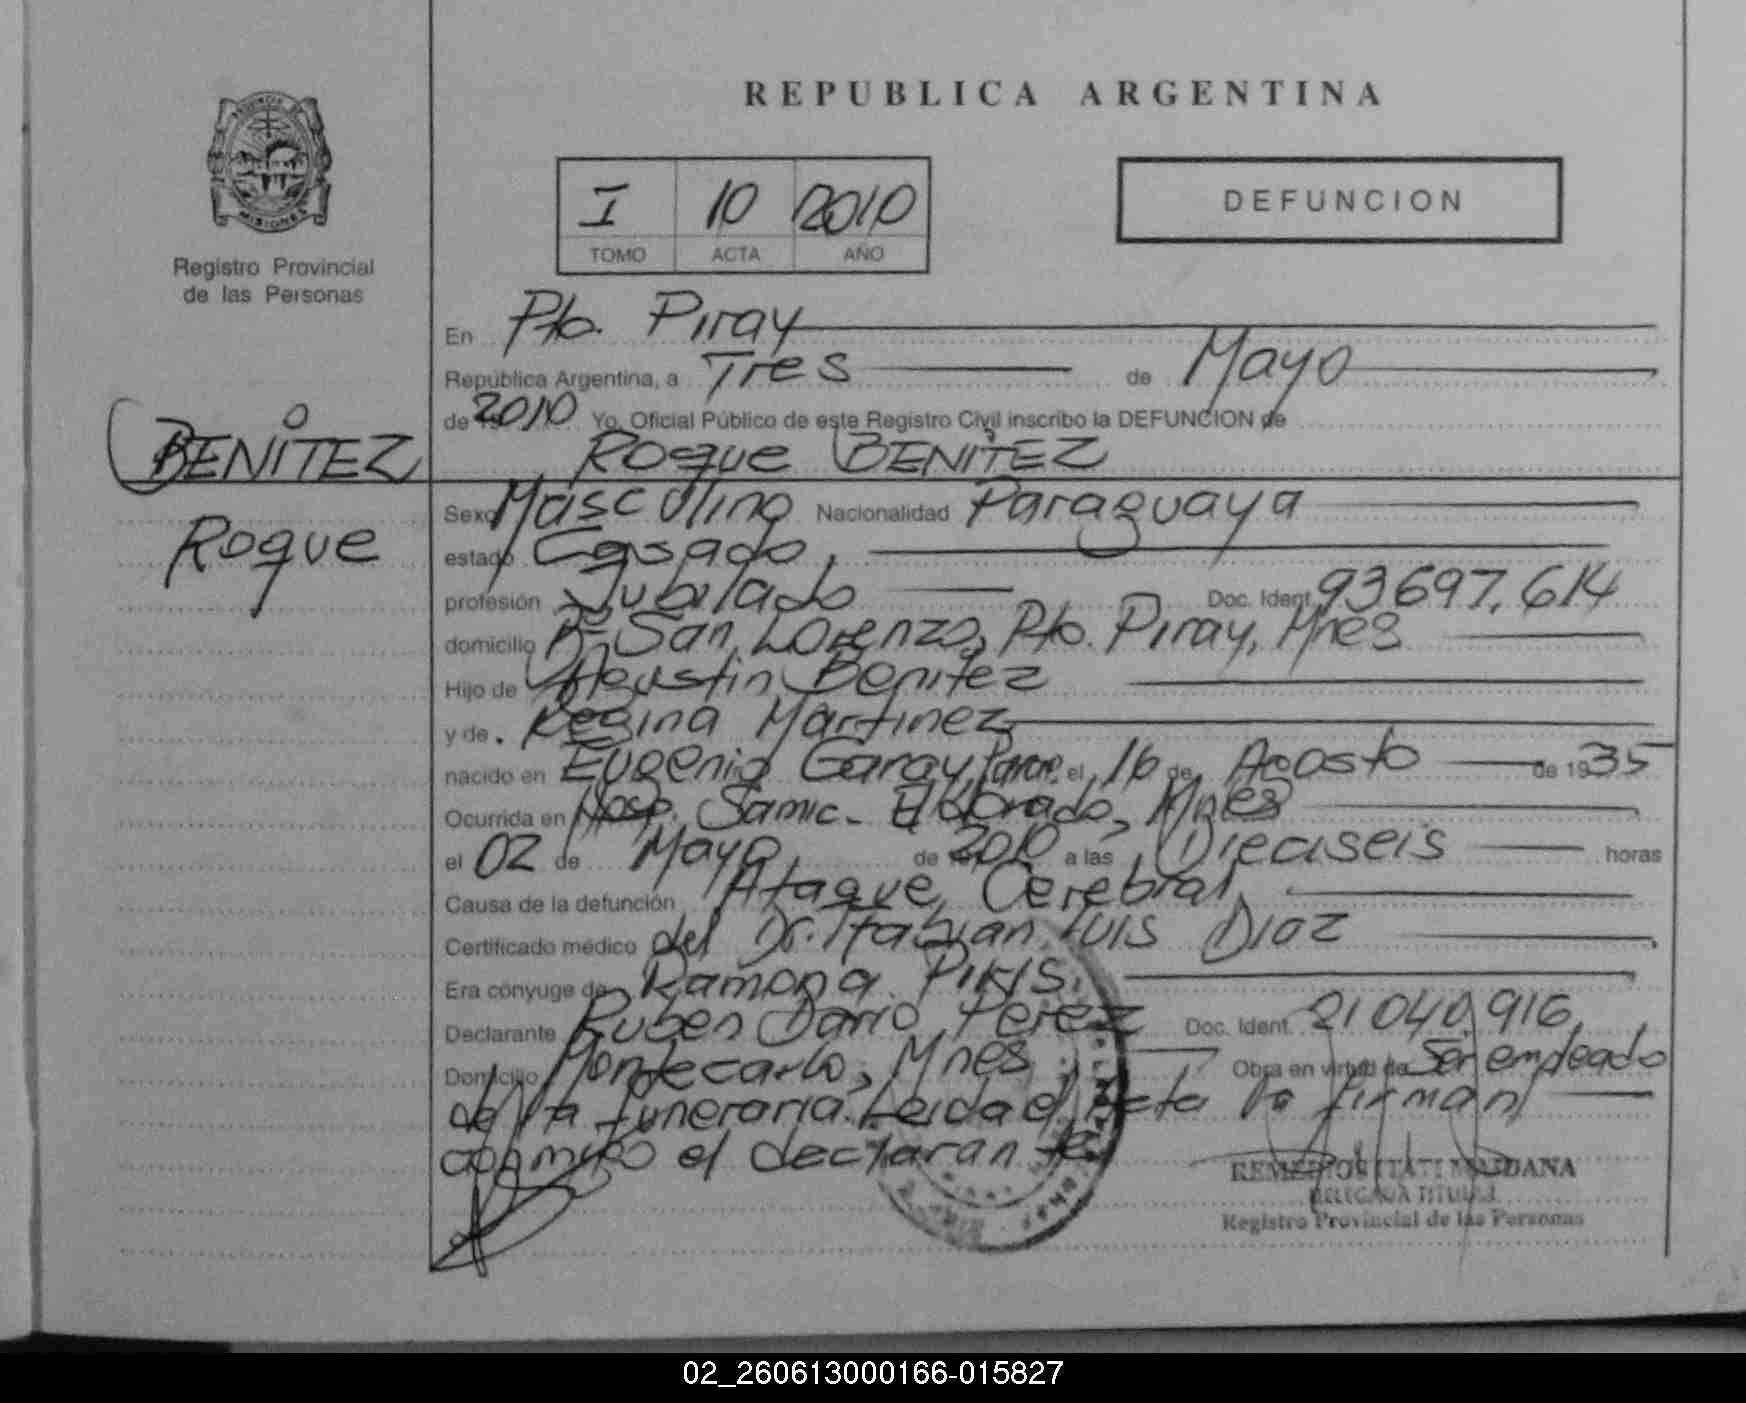 REPUBLICA ARGENTINA
PROVINCIA DE
MISIONES
Registro Provincial
de las Personas
I 10 2010
TOMO ACTA AÑO
DEFUNCION
En Pto. Piray
República Argentina, a Tres de Mayo
de 2010 Yo, Oficial Público de este Registro Civil inscribo la DEFUNCION de
Roque BENITEZ
BENITEZ
Roque
Sexo Masculino Nacionalidad Paraguaya
estado Casado,
profesión Jubilado Doc. Ident. 93697.614
domicilio Bº San Lorenzo, Pto. Piray, Mnes
Hijo de Agustin Benitez
y de Regina Martinez
nacido en Eugenio Garay, el 16 de Agosto de 1935
Ocurrida en Hosp. Samic. Eldorado, Mnes
el 02 de Mayo de 2010 a las Dieciseis horas
Causa de la defunción Ataque Cerebral
Certificado médico del Dr. Fabian Luis Diaz
Era cónyuge de Ramona Piris.
Declarante Ruben Dario Perez Doc. Ident. 21040.916
Domicilio Montecarlo, Mnes Obra en virtud de Ser empleado
de la funeraria. Leida el Acta la firman
conmigo el declarante
REMEDIOS ITATI MAIDANA
DELEGADA TITULAR
Registro Provincial de las Personas
02_260613000166-015827